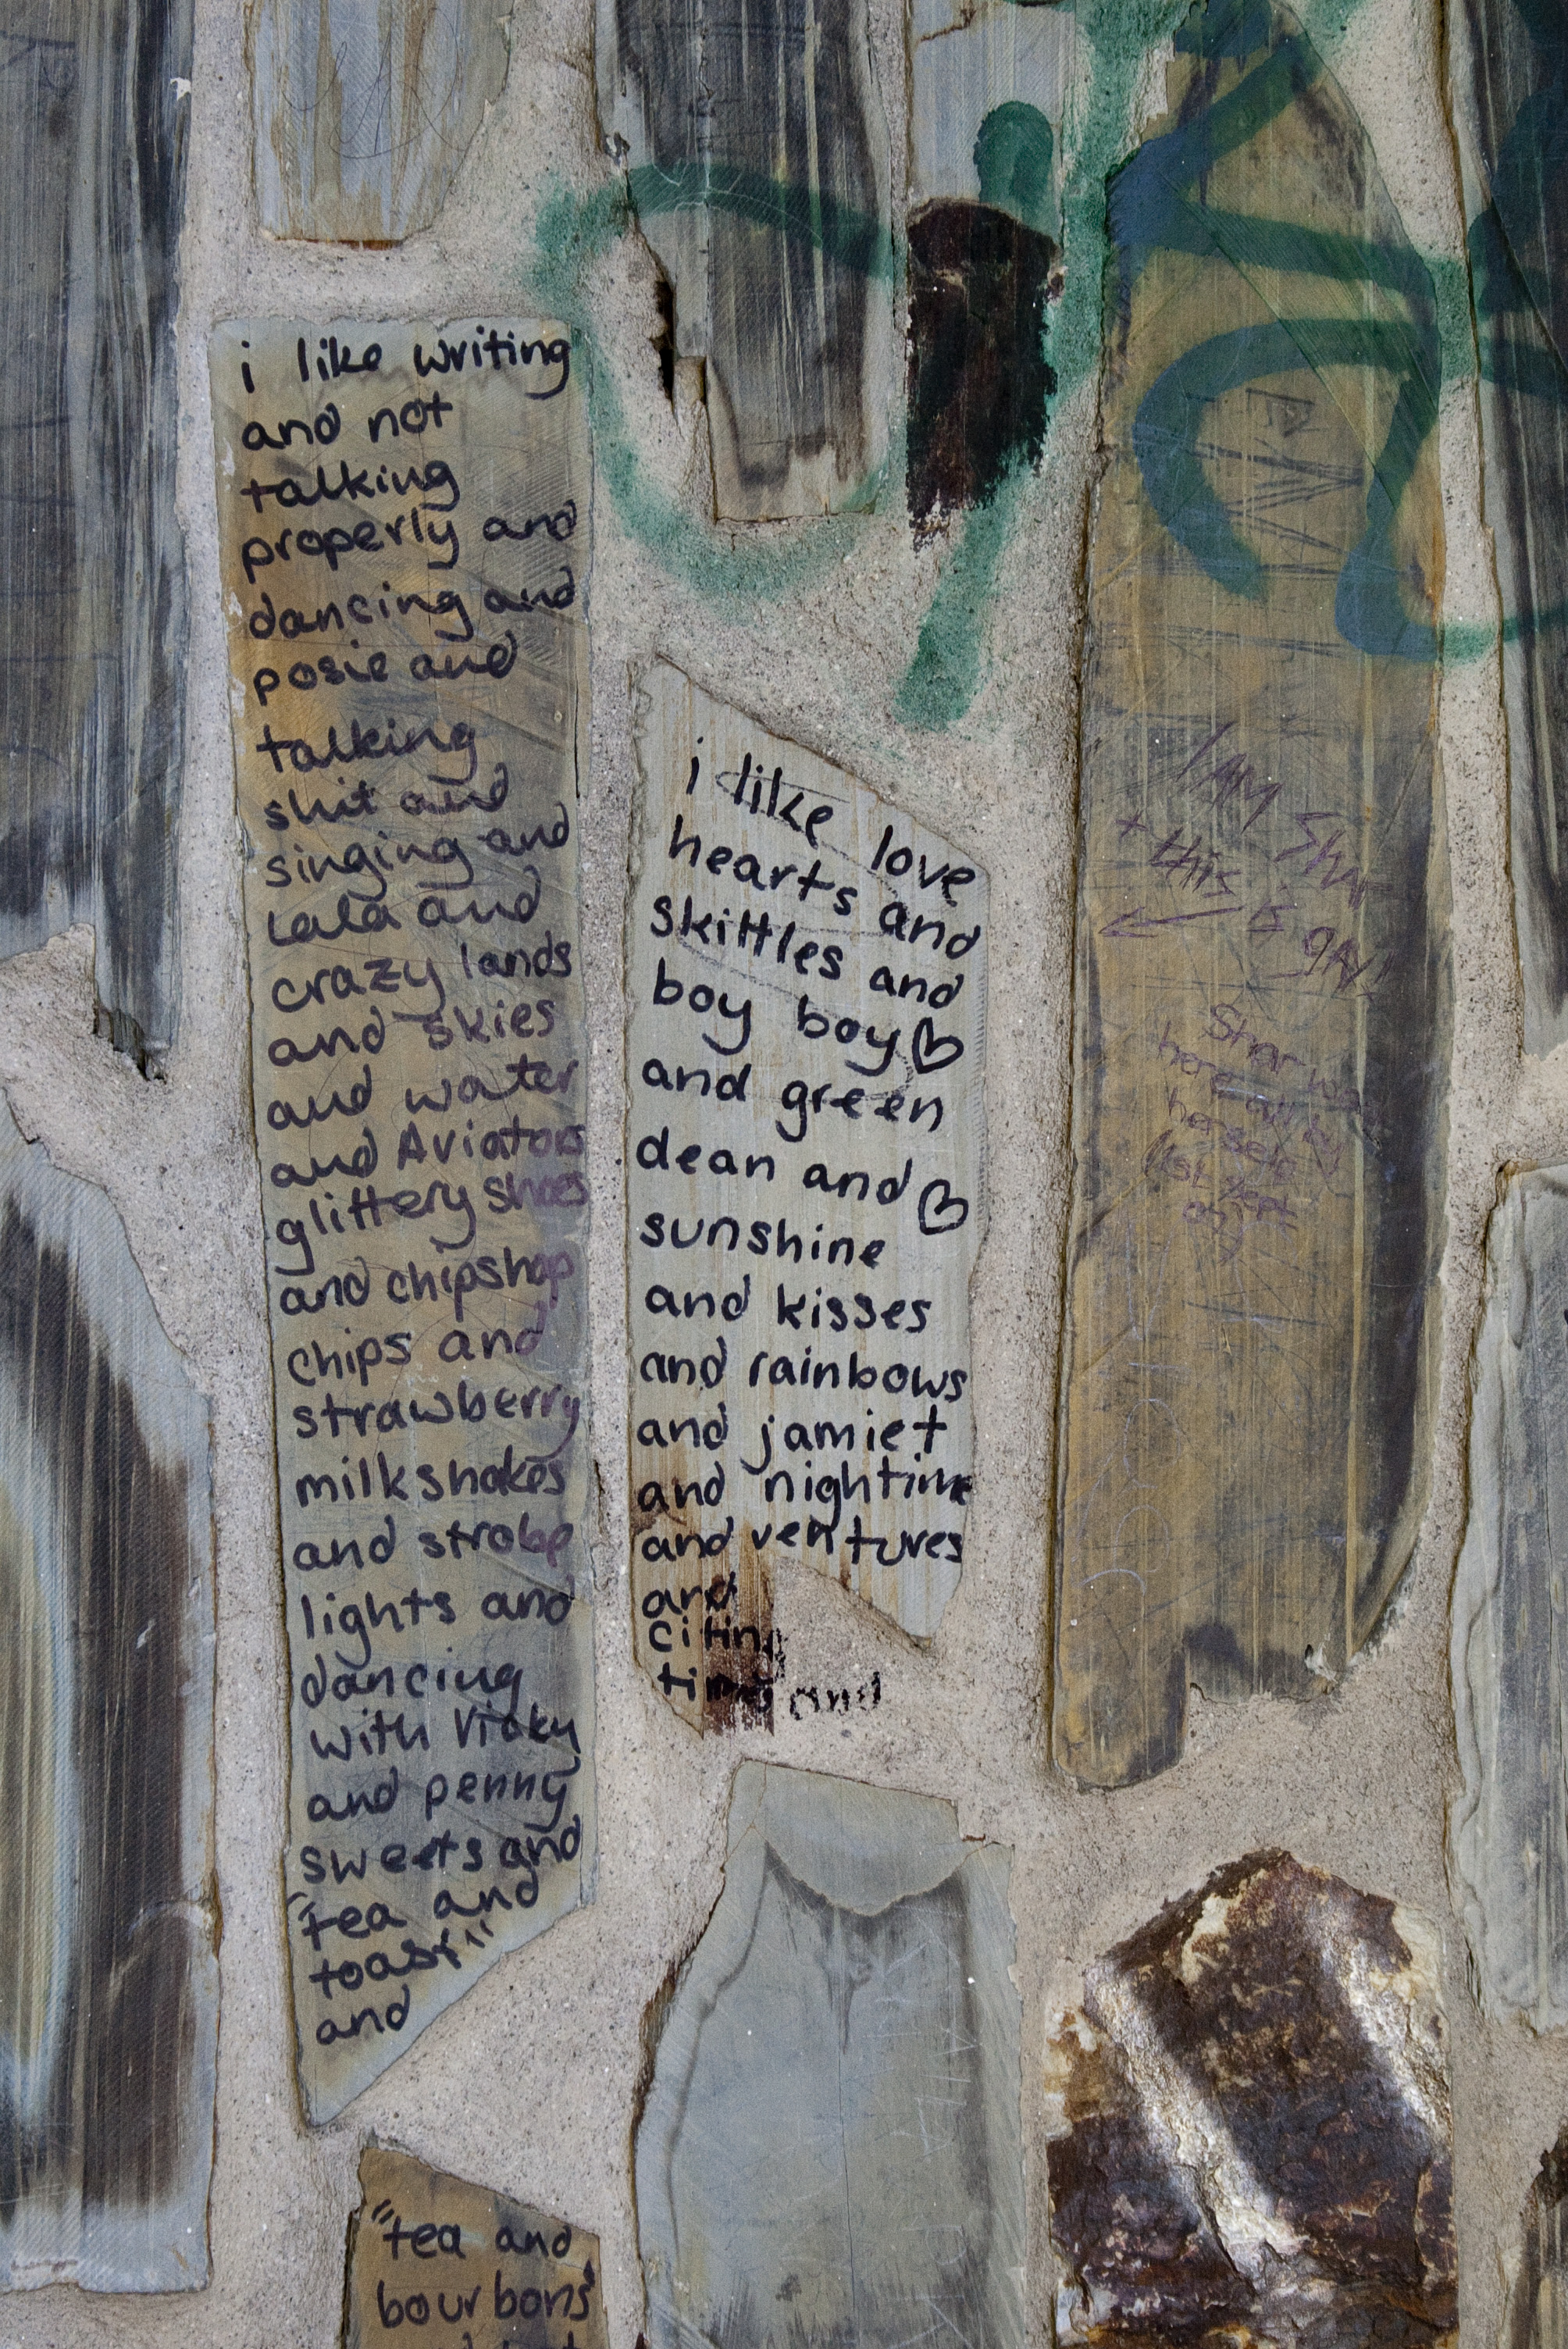 i like writing
and not
talking
properly and
dancing and
posie and
talking
shit and
singing and
Lala and
crazy lands
and skies
and water
and Aviators
glittery shoes
and chipshop
chips and
strawberry
milkshakes
and strobe
lights and
dancing
with Vicky
and penny
sweets and
"tea and
toast"
and
"tea and
bourbons"
i like love
hearts and
skittles and
boy boy ♡
and green
dean and ♡
sunshine
and kisses
and rainbows
and jamie t
and nightime
and ventures
and
citing
time and
I AM Shar
+ this is
Shar was
here all by
herself